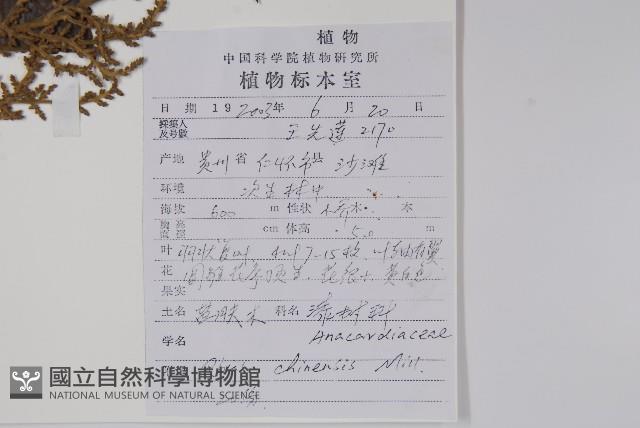 植物
中国科学院植物研究所
植物标本室
日期 19 2003年 6 月 20 日
採集人及号数 王先莲 2170
产地 贵州省 仁怀市县 沙滩
环境 次生林中
海拔 600 m 性状 小乔木 本
胸高直径 cm 体高 5.0 m
叶 羽状复叶 7-15枚
花 黄白色
果实
土名 盐肤木 科名 漆树科
学名 Anacardiaceae
chinensis Mill.
國立自然科學博物館
NATIONAL MUSEUM OF NATURAL SCIENCE